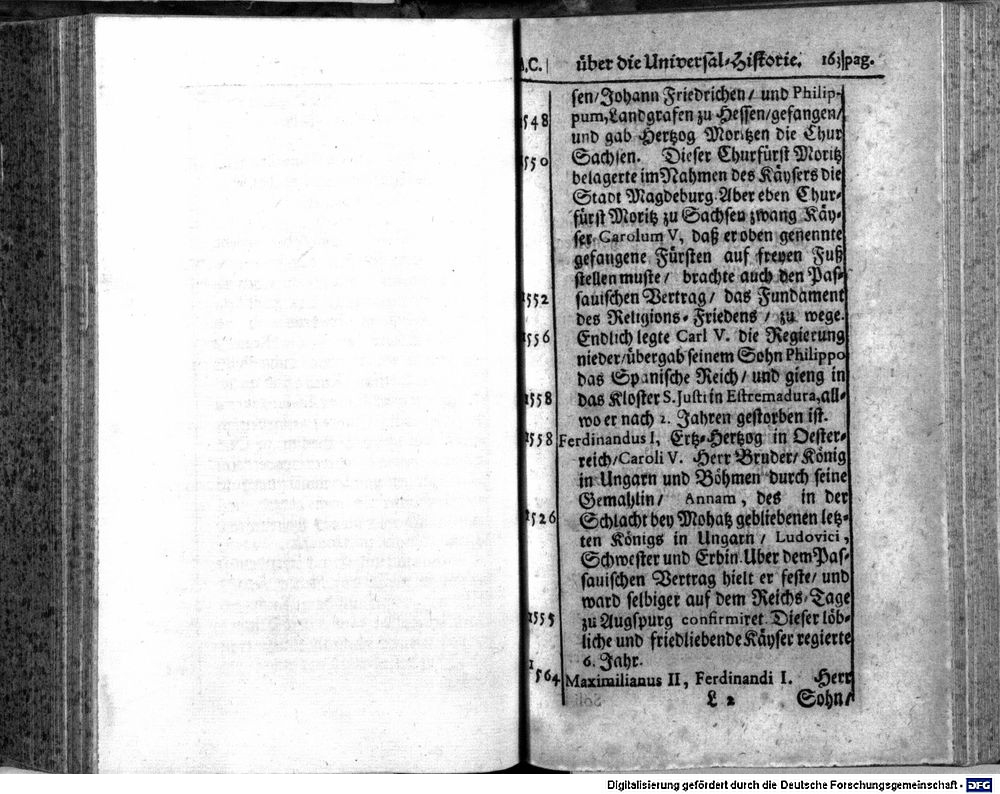 A.C. über die Universal-Historie. 163 pag.
sen/Johann Friedrichen/ und Philip-
1548 pum, Landgrafen zu Hessen/gefangen/
und gab Hertzog Moritzen die Chur
1550 Sachsen. Dieser Churfürst Moritz
belagerte im Nahmen des Käysers die
Stadt Magdeburg. Aber eben Chur-
fürst Moritz zu Sachsen zwang Käy-
ser Carolum V, daß er oben genennte
gefangene Fürsten auf freyen Fuß
stellen muste/ brachte auch den Pas-
1552 sauischen Vertrag/ das Fundament
des Religions-Friedens/ zu wege.
1556 Endlich legte Carl V. die Regierung
nieder/übergab seinem Sohn Philippo
das Spanische Reich/ und gieng in
1558 das Kloster S. Justi in Estremadura, all-
wo er nach 2. Jahren gestorben ist.
1558 Ferdinandus I, Ertz-Hertzog in Oester-
reich/Caroli V. Herr Bruder/ König
in Ungarn und Böhmen durch seine
Gemahlin/ Annam, des in der
1526 Schlacht bey Mohatz gebliebenen letz-
ten Königs in Ungarn/ Ludovici,
Schwester und Erbin. Uber dem Pas-
sauischen Vertrag hielt er feste/ und
ward selbiger auf dem Reichs-Tage
1555 zu Augspurg confirmiret. Dieser löb-
liche und friedliebende Käyser regierte
6. Jahr.
1564 Maximilianus II, Ferdinandi I. Herr
L 2 Sohn/
Digitalisierung gefördert durch die Deutsche Forschungsgemeinschaft - DFG